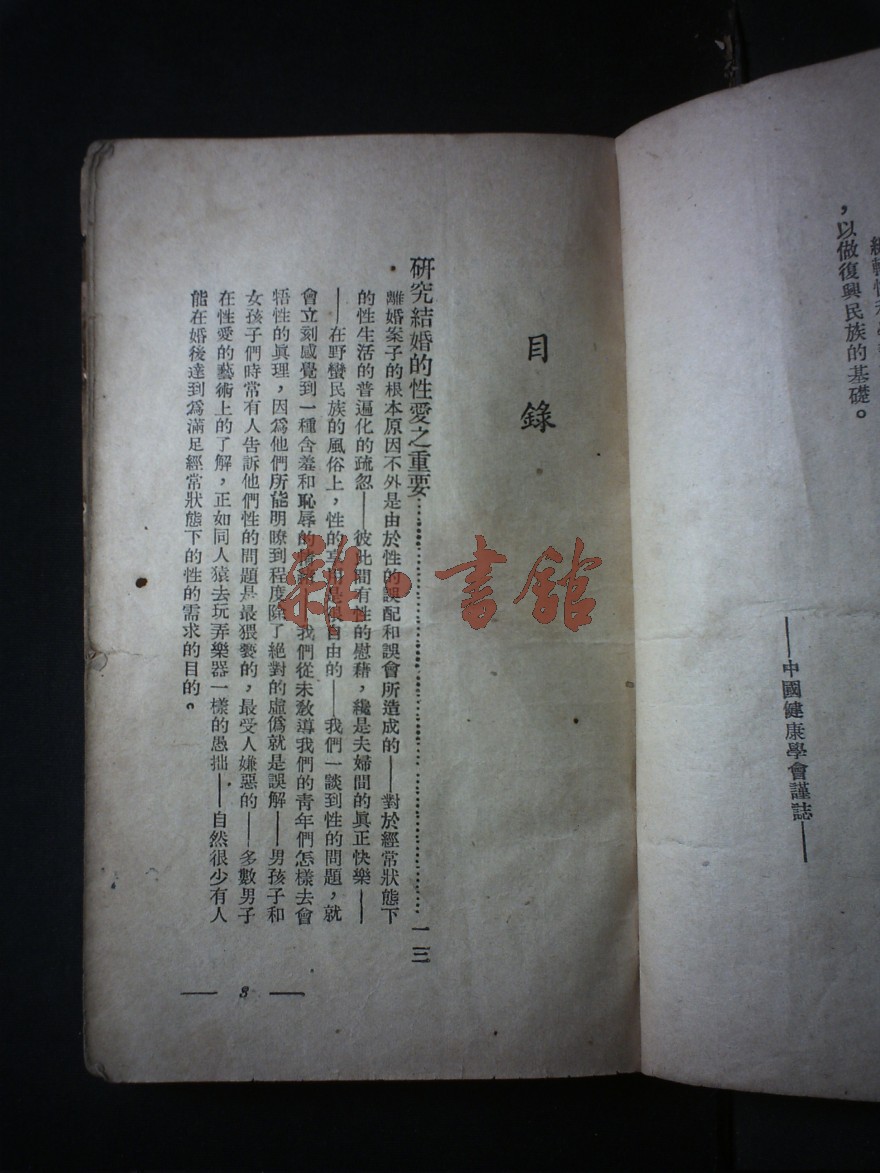 ，以做復興民族的基礎。
——中國健康學會謹誌——
目錄
研究結婚的性愛之重要……一三
離婚案子的根本原因不外是由於性的誤配和誤會所造成的——對於經常狀態下
的性生活的普遍化的疏忽——彼此間有性的慰藉，纔是夫婦間的眞正快樂——
——在野蠻民族的風俗上，性的享用是很自由的——我們一談到性的問題，就
會立刻感覺到一種含羞和恥辱的——我們從未教導我們的靑年們怎樣去會
悟性的眞理，因爲他們所能明瞭到程度除了絕對的虛僞就是誤解——男孩子和
女孩子們時常有人告訴他們性的問題是最猥褻的，最受人嫌惡的——多數男子
在性愛的藝術上的了解，正如同人猿去玩弄樂器一樣的愚拙——自然很少有人
能在婚後達到爲滿足經常狀態下的性的需求的目的。
— 3 —
雜·書館